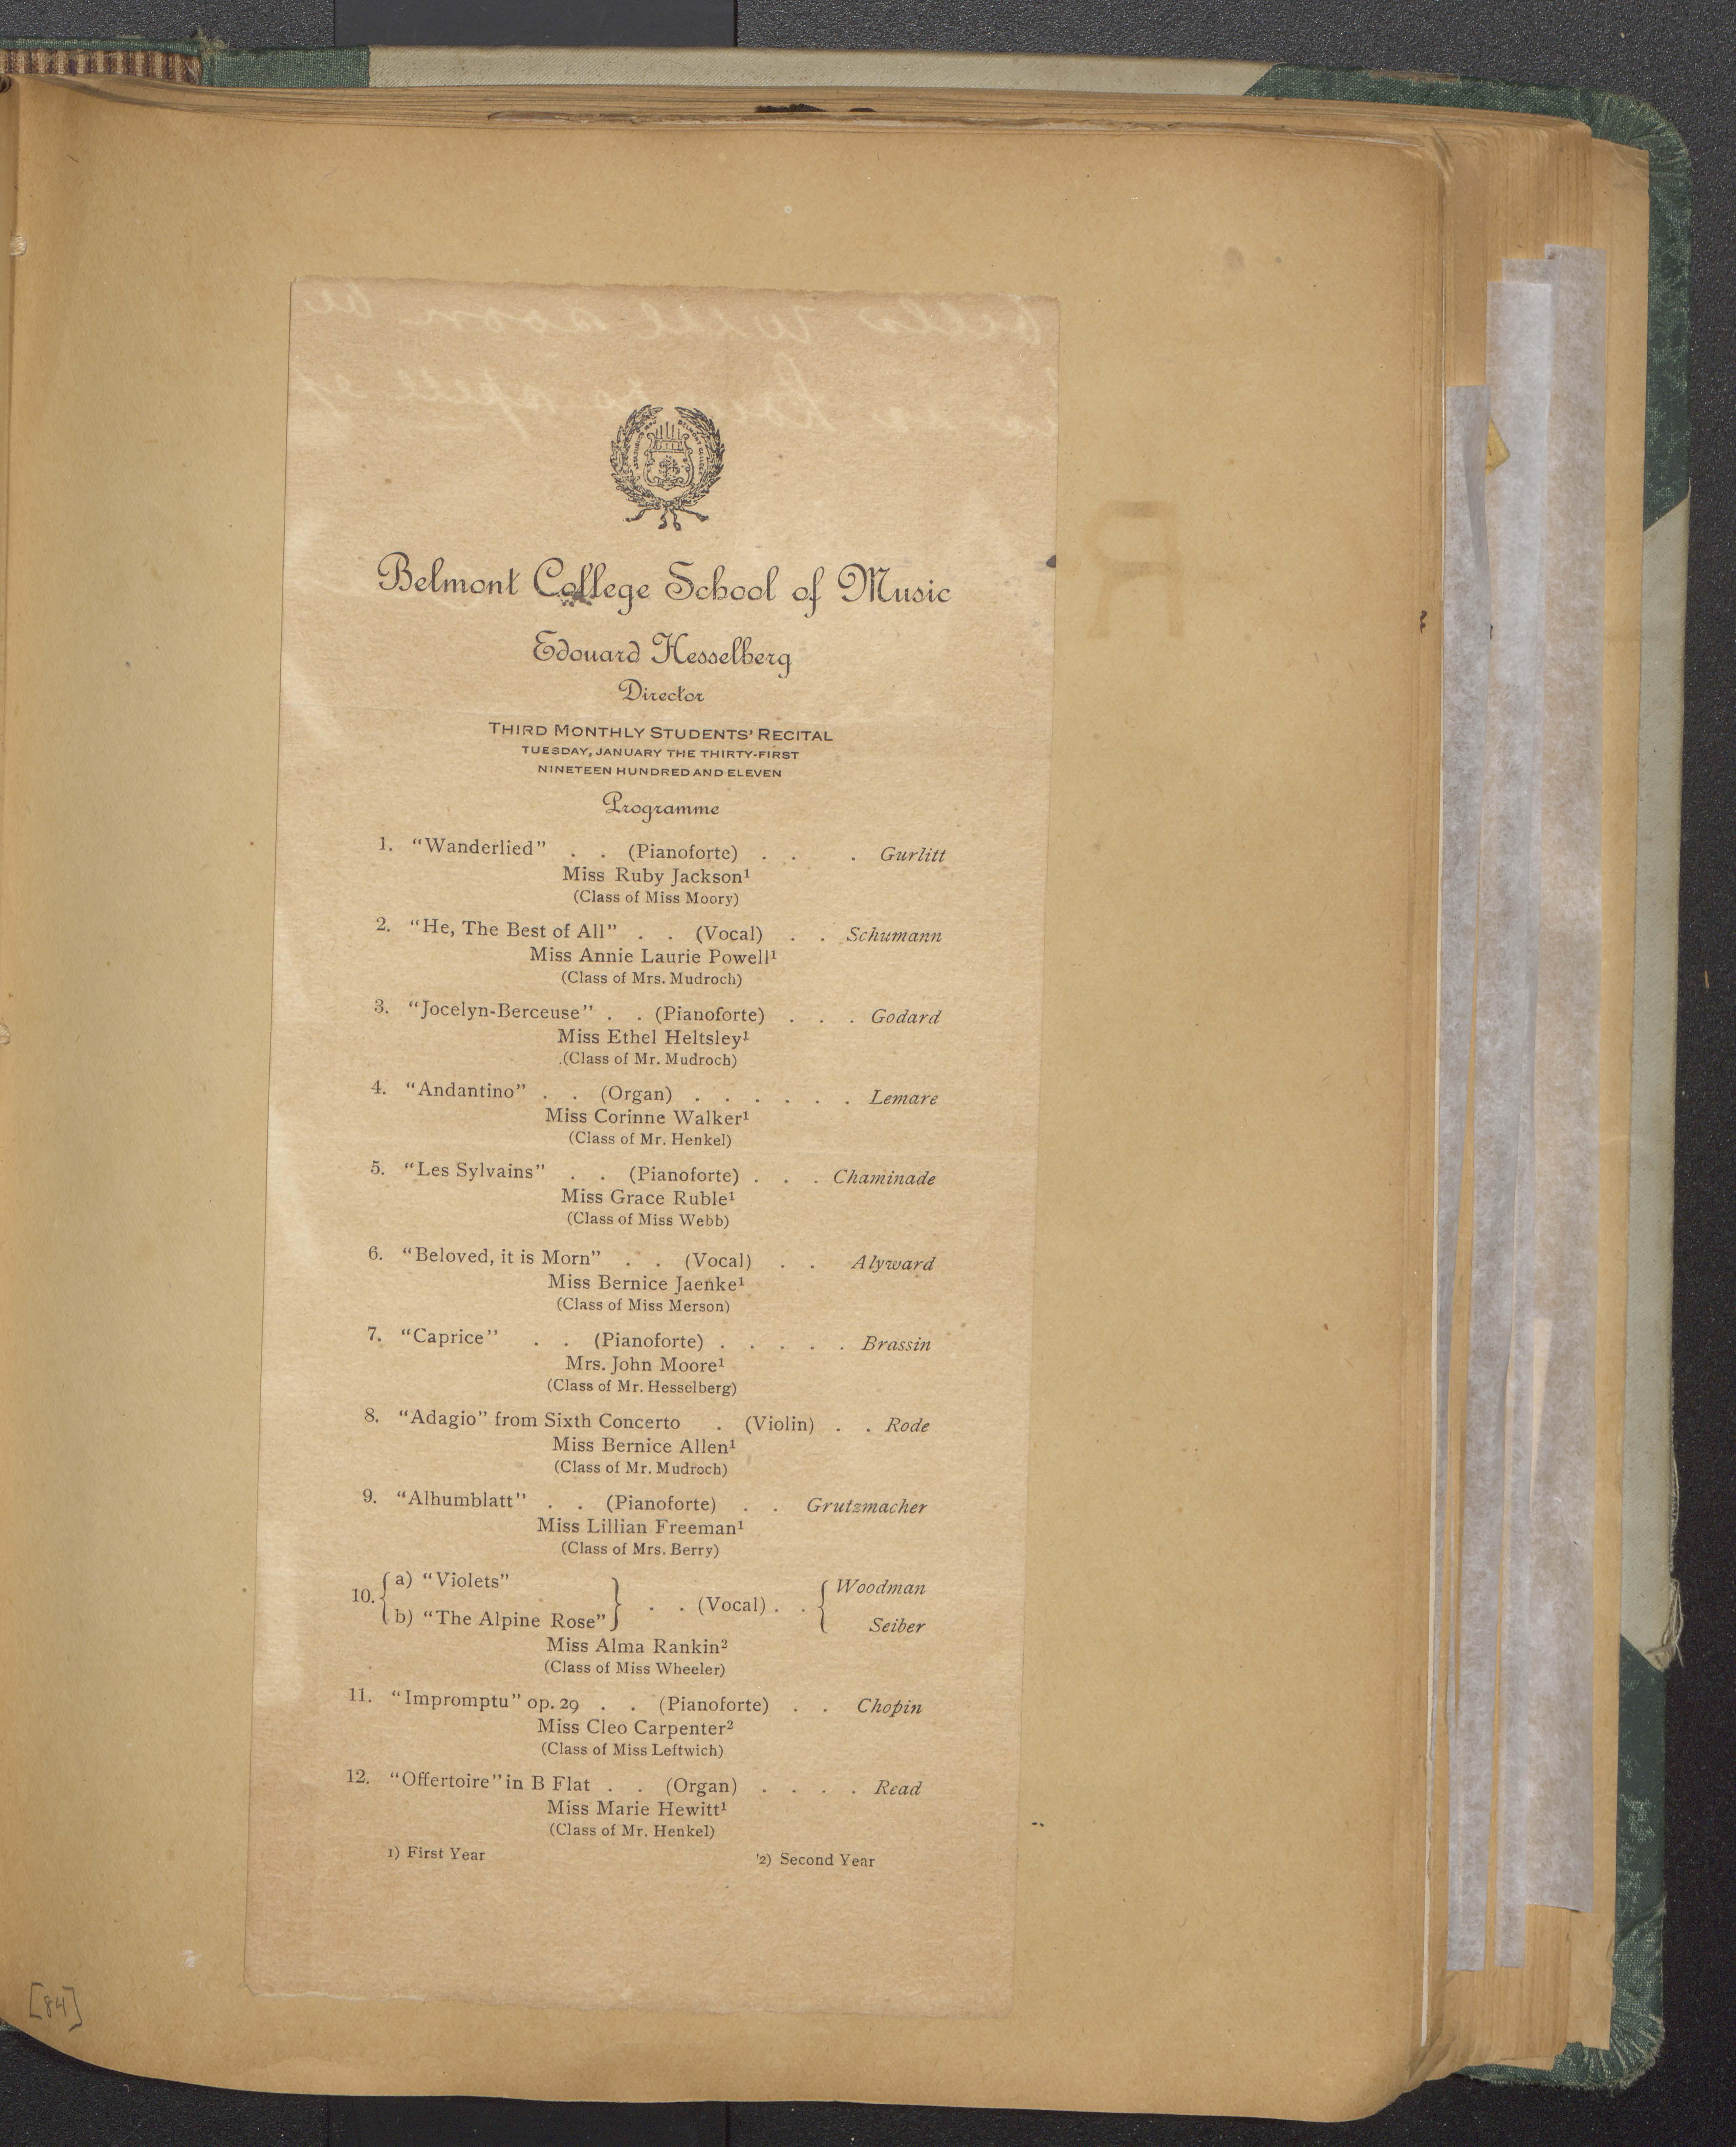 Belmont College School of Music
Edouard Hesselberg
Director
THIRD MONTHLY STUDENTS' RECITAL
TUESDAY, JANUARY THE THIRTY-FIRST
NINETEEN HUNDRED AND ELEVEN
Programme
1. “Wanderlied” . . (Pianoforte) . . . Gurlitt
Miss Ruby Jackson¹
(Class of Miss Moory)
2. “He, The Best of All” . . (Vocal) . . Schumann
Miss Annie Laurie Powell¹
(Class of Mrs. Mudroch)
3. “Jocelyn-Berceuse” . . (Pianoforte) . . . Godard
Miss Ethel Heltsley¹
(Class of Mr. Mudroch)
4. “Andantino” . . (Organ) . . . . . . Lemare
Miss Corinne Walker¹
(Class of Mr. Henkel)
5. “Les Sylvains” . . (Pianoforte) . . . Chaminade
Miss Grace Ruble¹
(Class of Miss Webb)
6. “Beloved, it is Morn” . . (Vocal) . . Alyward
Miss Bernice Jaenke¹
(Class of Miss Merson)
7. “Caprice” . . (Pianoforte) . . . . . Brassin
Mrs. John Moore¹
(Class of Mr. Hesselberg)
8. “Adagio” from Sixth Concerto . (Violin) . . Rode
Miss Bernice Allen¹
(Class of Mr. Mudroch)
9. “Alhumblatt” . . (Pianoforte) . . Grutzmacher
Miss Lillian Freeman¹
(Class of Mrs. Berry)
10. { a) “Violets” } . . (Vocal) . . { Woodman
b) “The Alpine Rose” Seiber
Miss Alma Rankin²
(Class of Miss Wheeler)
11. “Impromptu” op. 29 . . (Pianoforte) . . Chopin
Miss Cleo Carpenter²
(Class of Miss Leftwich)
12. “Offertoire” in B Flat . . (Organ) . . . . Read
Miss Marie Hewitt¹
(Class of Mr. Henkel)
1) First Year 2) Second Year
[84]